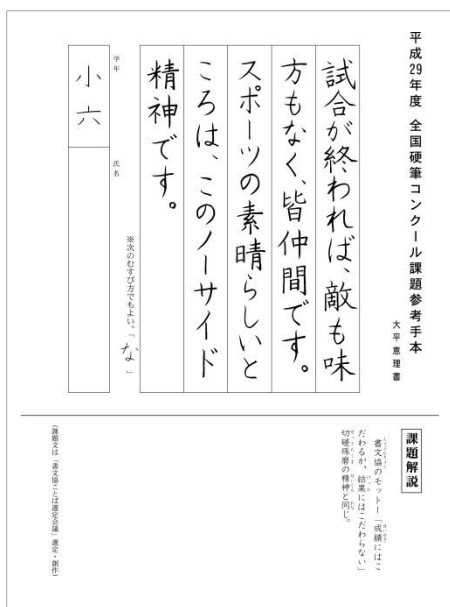 平成29年度 全国硬筆コンクール課題参考手本
大平恵理書
試合が終われば、敵も味
方もなく、皆仲間です。
スポーツの素晴らしいと
ころは、このノーサイド
精神です。
※次のむすび方でもよい。「な」
学年
小六
氏名
課題解説
書文協のモットー「成績にはこ
だわるが、結果にはこだわらない」
切磋琢磨の精神と同じ。
(課題文は「書文協ことば選定会議」選定・創作)